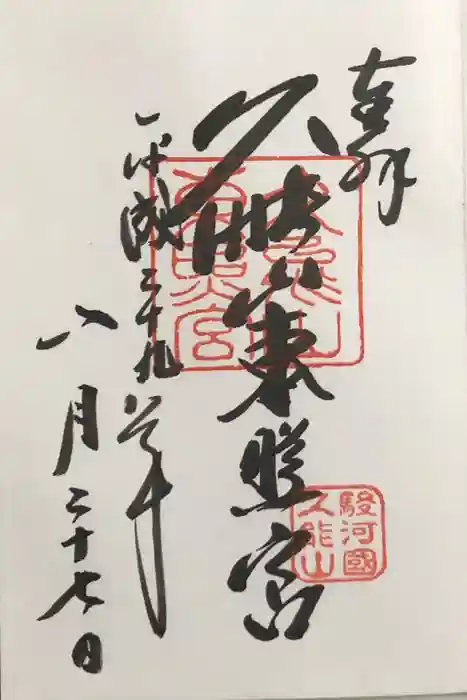 奉拝
久能山東照宮
久能山東照宮
駿河國
久能山
平成二十九年
八月二十七日